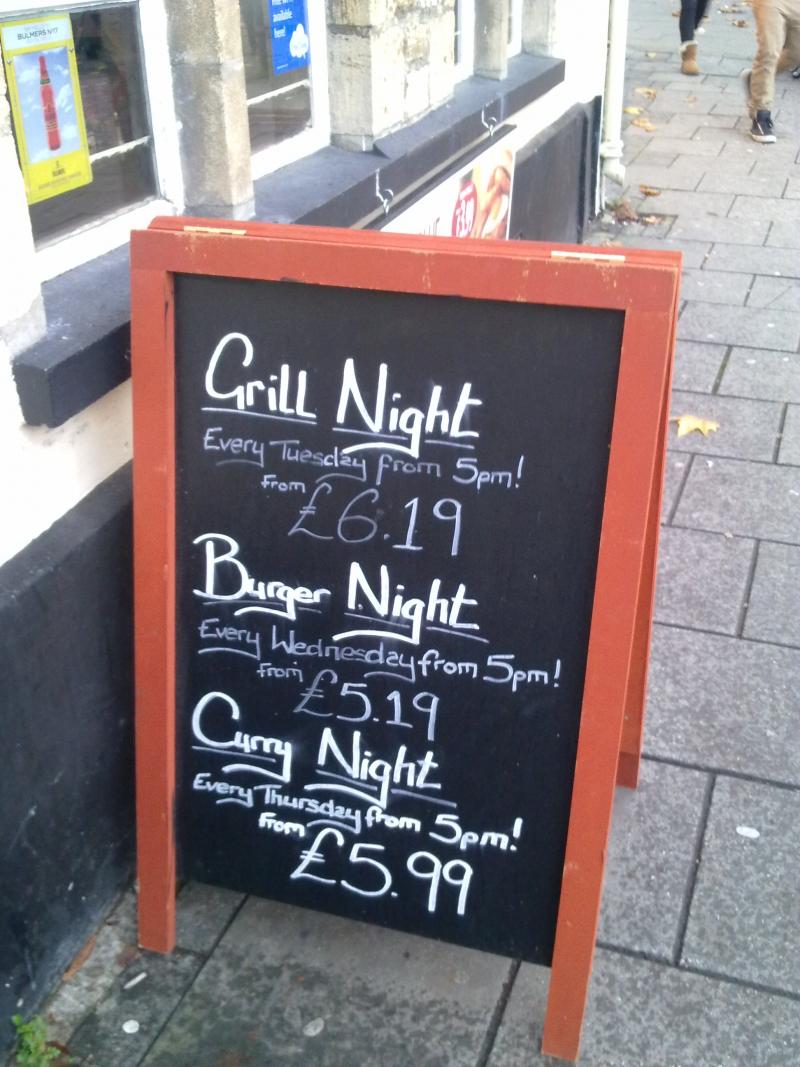 BULMERS Nº17
available
here!
£3.99
Grill Night
Every Tuesday from 5pm!
from
£6.19
Burger Night
Every Wednesday from 5pm!
from
£5.19
Curry Night
Every Thursday from 5pm!
From
£5.99